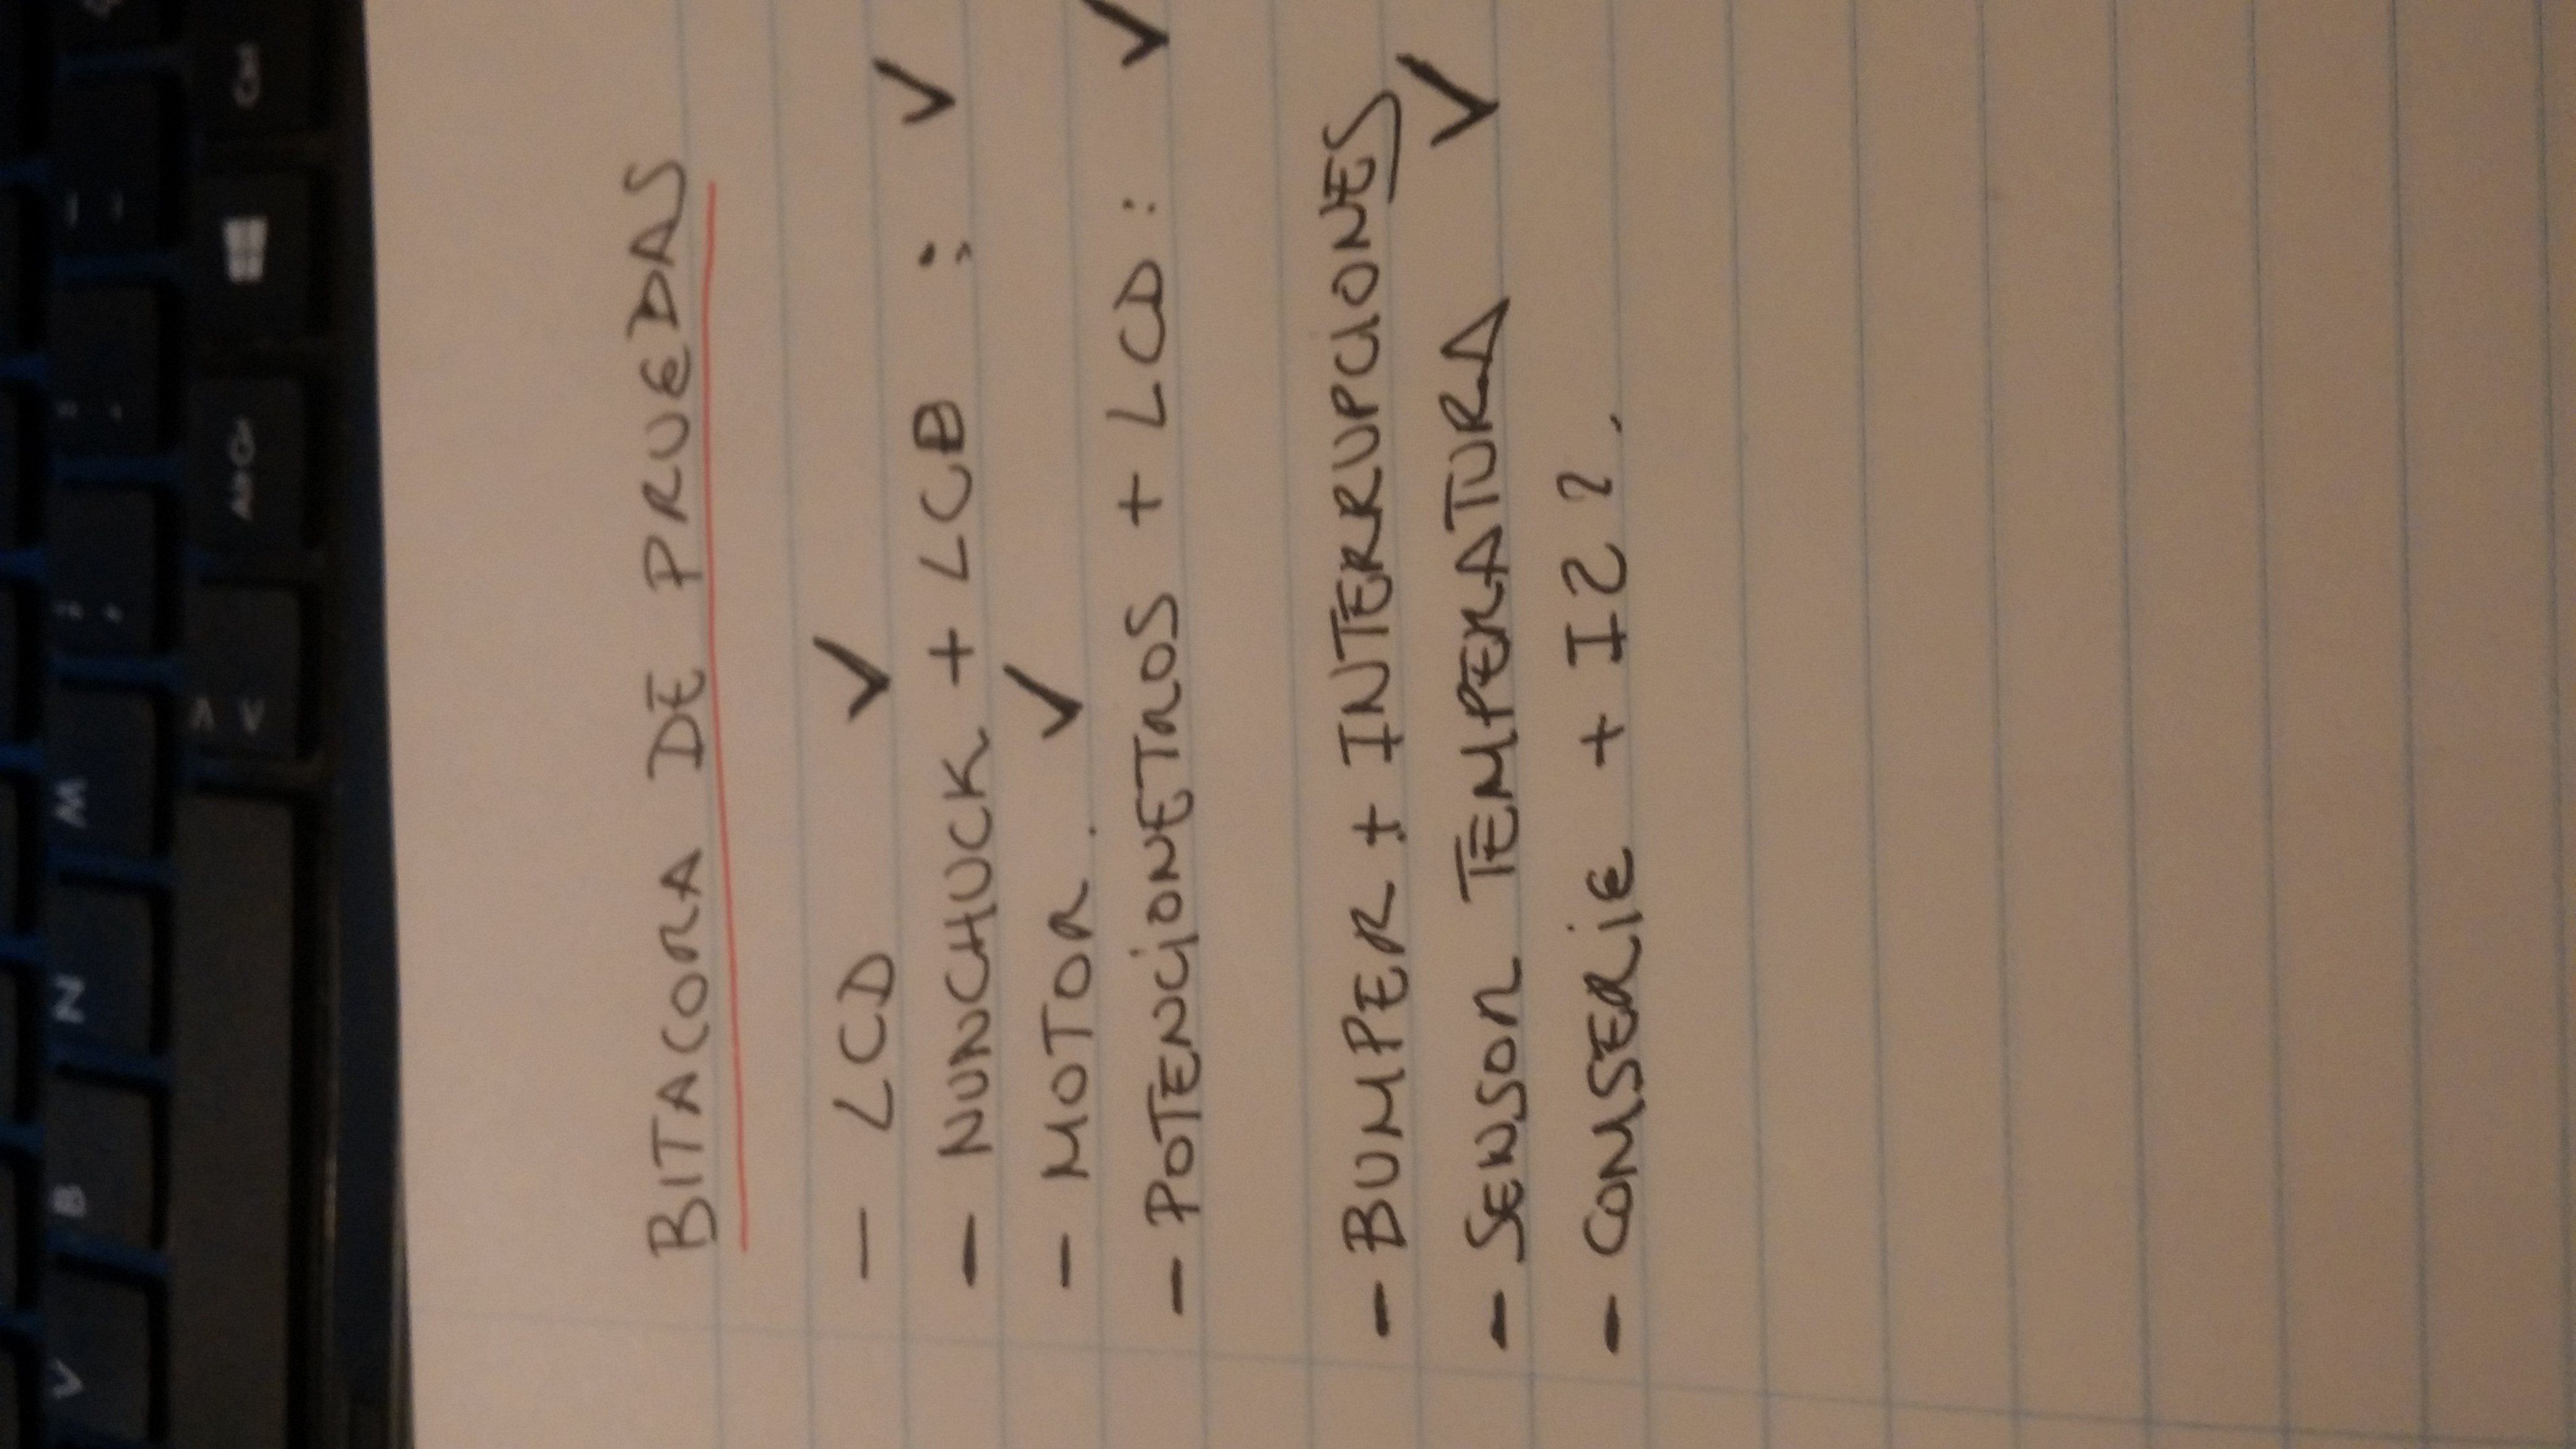 V B N M ; , : . _ -
> < Alt Gr Ctrl
BITACORA DE PRUEBAS
- LCD ✓
- NUNCHUCK + LCD : ✓
- MOTOR . ✓
- POTENCIONETROS + LCD : ✓
- BUMPER + INTERRUPCIONES
- SENSOR TEMPERATURA ✓
- COMSERIE + I2 ? .